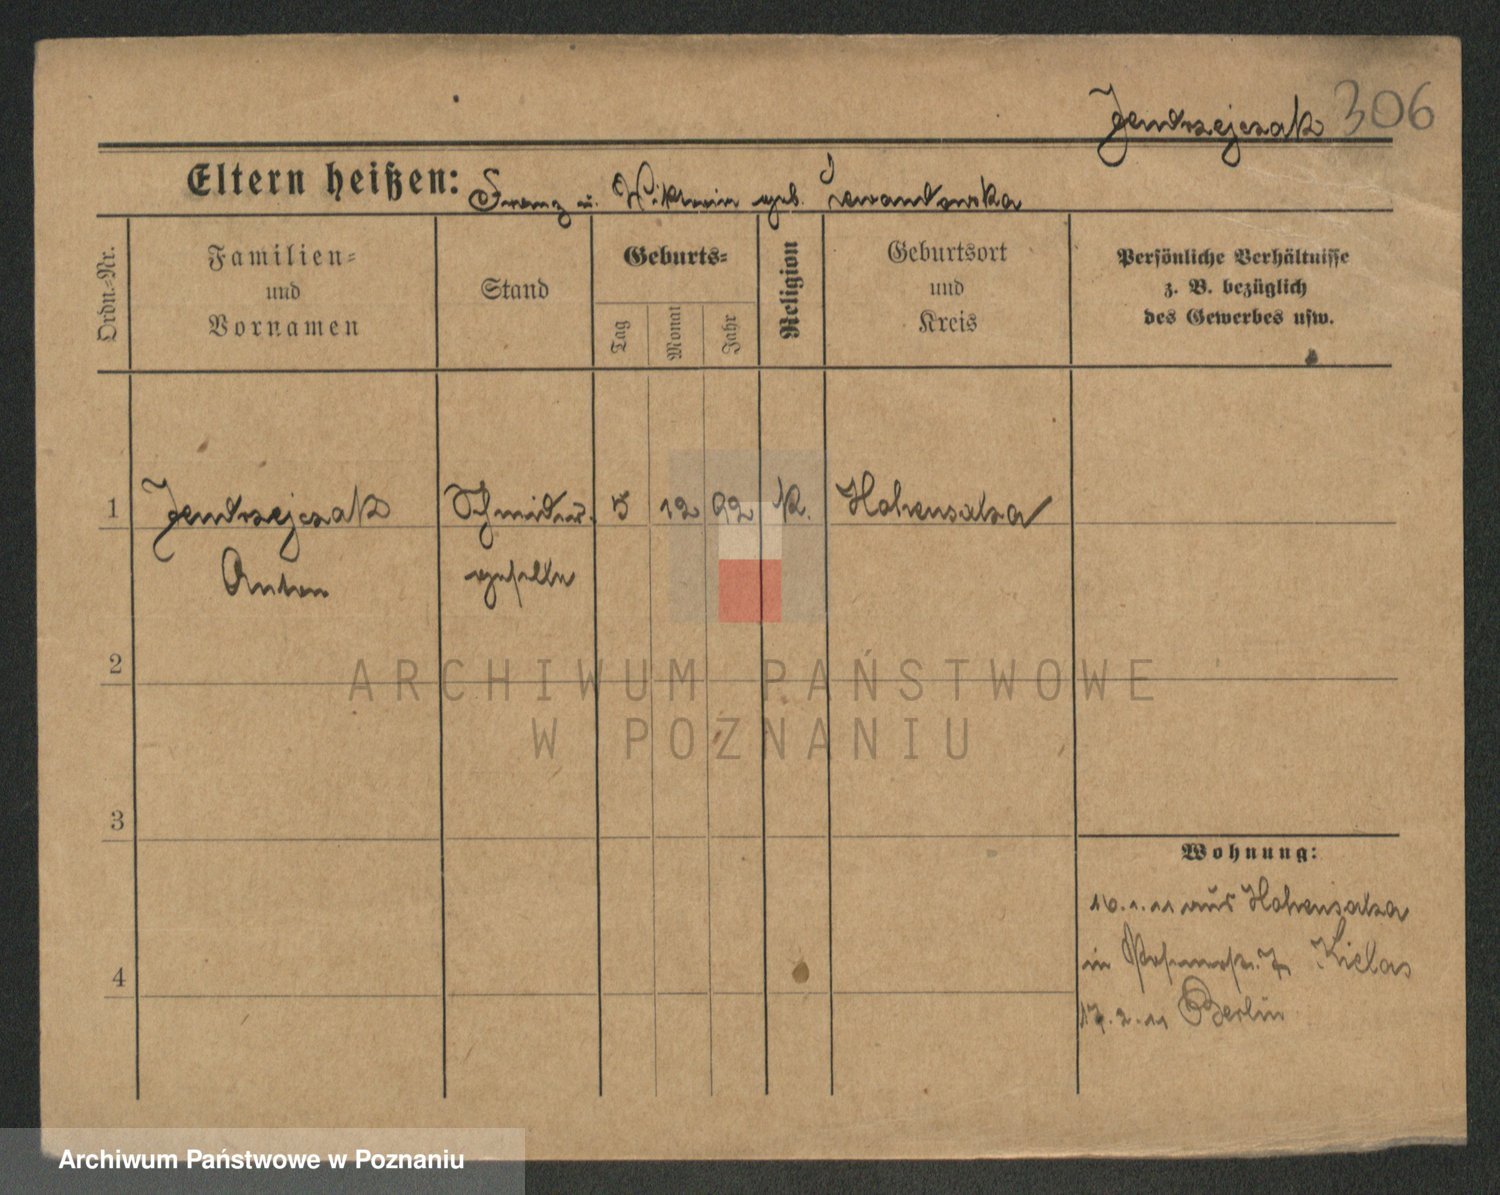 Jendrzejczak 306
Eltern heißen: Franz u. Viktoria geb. Lewandowska
Ordn.-Nr.
Familien-
und
Vornamen
Stand
Geburts-
Tag
Monat
Jahr
Religion
Geburtsort
und
Kreis
Persönliche Verhältnisse
z. B. bezüglich
des Gewerbes usw.
1 Jendrzejczak Schneider- 5 12 92 K. Hohensalza
Anton geselle
2
ARCHIWUM PAŃSTWOWE
W POZNANIU
3
Wohnung:
10.1.11 aus Hohensalza
in 7 Kielas
4
17.2.11 Berlin
Archiwum Państwowe w Poznaniu